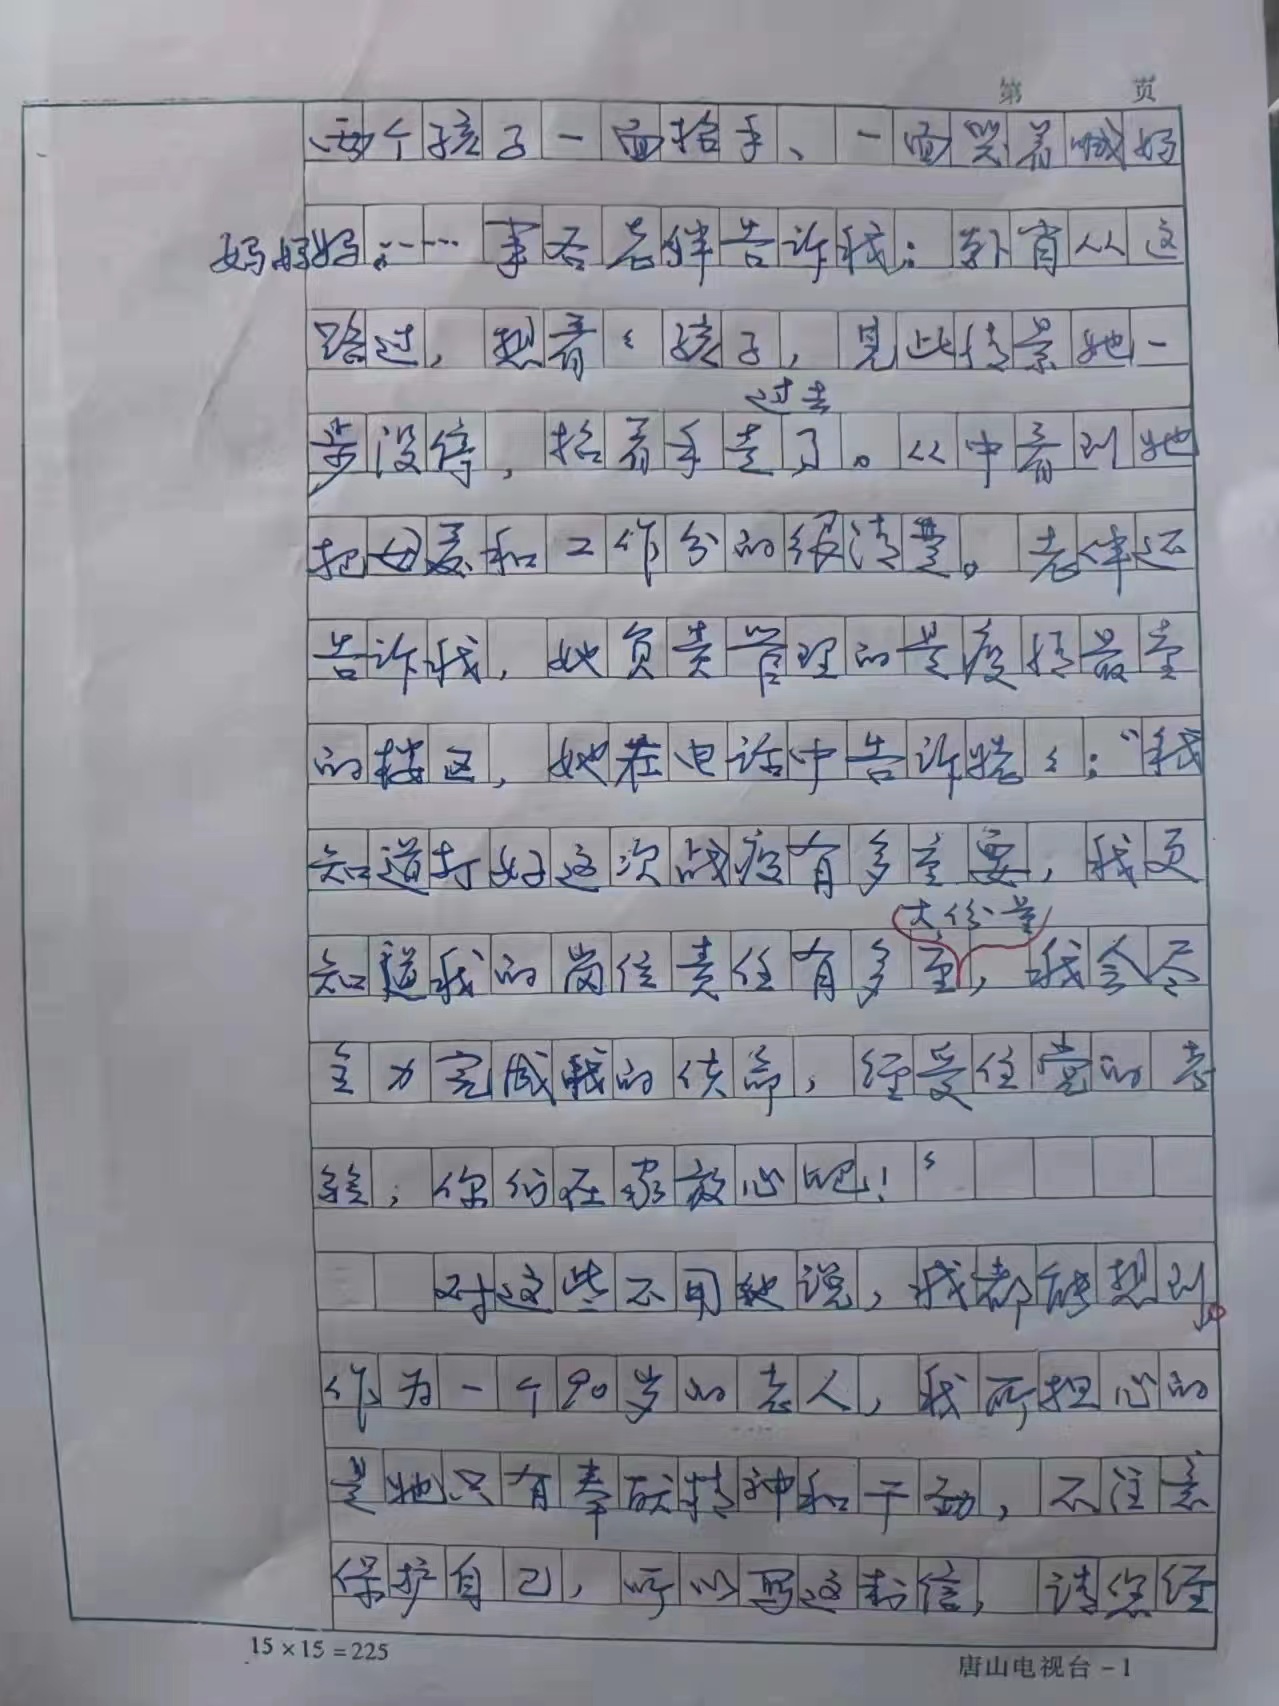 第 页
两个孩子一面抬手、一面笑着喊妈
妈妈妈……事后老伴告诉我：外肖从这
路过，想看〻孩子，见此情景她一
过去
步没停，招着手走了。从中看到她
把母爱和工作分的很清楚。老伴还
告诉我，她负责管理的是疫情最重
的楼区，她在电话中告诉姥〻：“我
知道打好这次战疫有多重要，我更
大份量
知道我的岗位责任有多重，我会尽
全力完成我的任务，经受住党的考
验，你们在家放心吧！”
对这些不用她说，我都能想到。
作为一个90岁的老人，我所担心的
是她只有奉献精神和干劲，不注意
保护自己，所以写这封信，请您经
15×15=225
唐山电视台-1